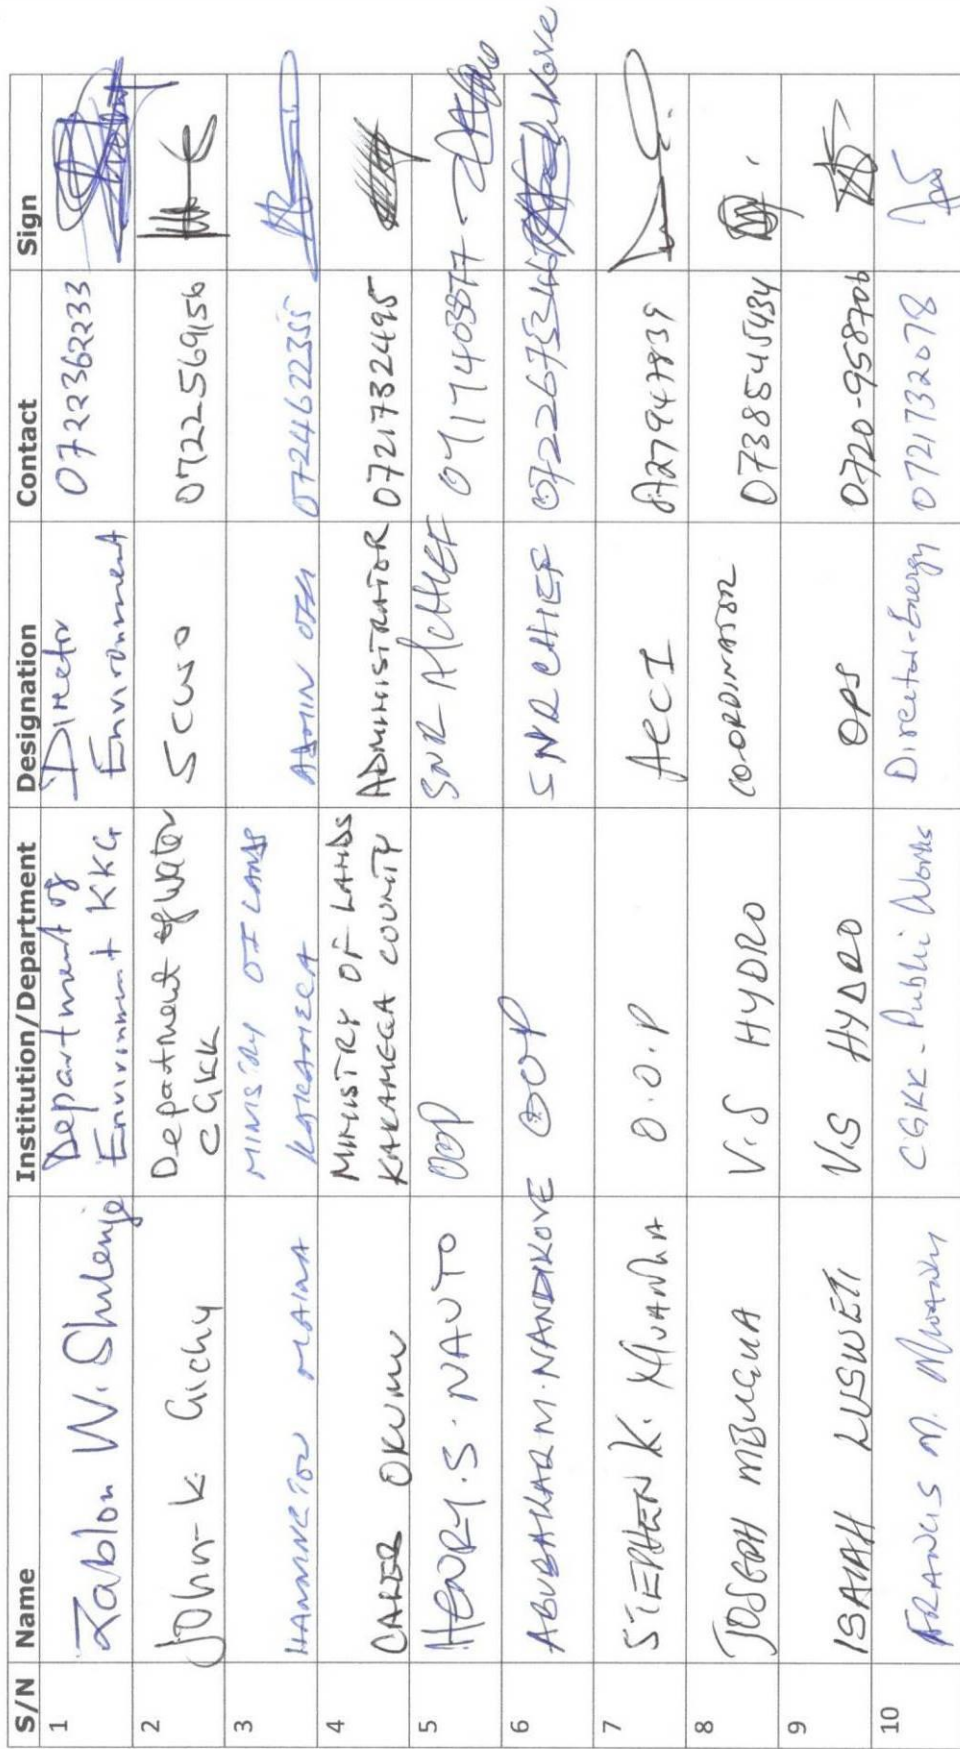 S/N Name Institution/Department Designation Contact Sign
1 Zablon W. Shilenje Department of Environment KKG Director Environment 0722362233
2 John K. Gichy Department of Water CGKK SCWO 0722569156
3 HANNINGTON MAINA MINISTRY OF LANDS KAKAMEGA ADMIN 0724622355
4 CALEB OKUMU MINISTRY OF LANDS KAKAMEGA COUNTY ADMINISTRATOR 0721732495
5 HENRY.S.NAUTO OOP SNR A/CHIEF
6 ABUBAKAR M.NANDIKOVE OOP SNR CHIEF
7 STEPHEN K. O.O.P AECI
8 JOSEPH MBUGUA V.S HYDRO COORDINATOR 0738545434
9 ISAIAH LUSWETI V.S HYDRO OPS 0720-958706
10 FRANCIS M. CGKK-Public Works Director-Energy 0721732078